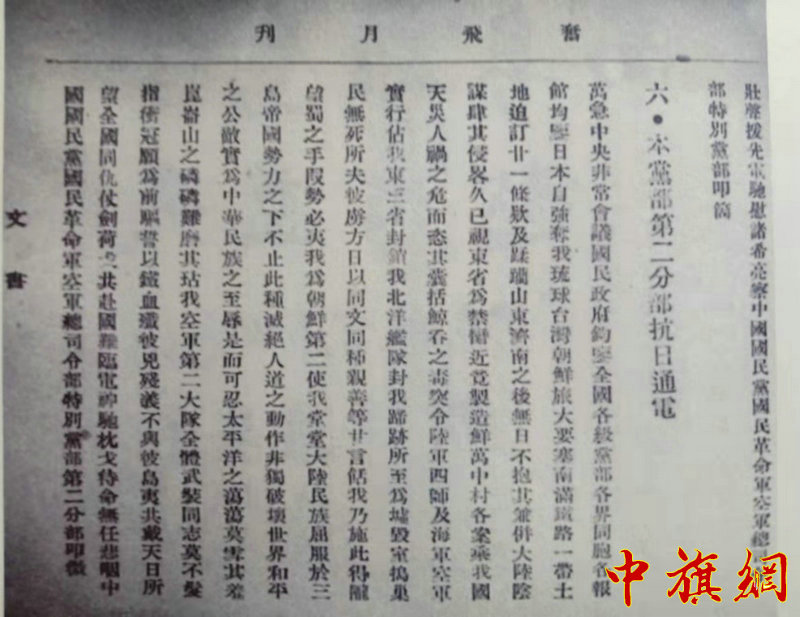 奮飛月刊
壯聲援先電馳慰諸希亮察中國國民黨國民革命軍空軍總司令
部特別黨部叩篠
六•本黨部第二分部抗日通電
萬急中央非常會議國民政府鈞鑒全國各級黨部各界同胞各報
館均鑒日本自強奪我琉球台灣朝鮮旅大要塞南滿鐵路一帶土
地迫訂廿一條欵及蹂躪山東濟南之後無日不抱其兼併大陸陰
謀肆其侵畧久已視東省爲禁臠近竟製造鮮萬中村各案乘我國
天災人禍之危而恣其囊括鯨吞之毒突令陸軍四師及海軍空軍
實行佔我東三省封鎖我北洋艦隊封我蹄跡所至爲墟毀室搗巢
民無死所夫彼虜方日以同文同種親善等甘言餂我乃施此得隴
望蜀之手段勢必夷我爲朝鮮第二使我堂堂大陸民族屈服於三
島帝國勢力之下不止此種滅絕人道之動作非獨破壞世界和平
之公敵實爲中華民族之至辱是而可忍太平洋之蕩蕩莫雪其羞
崑崙山之磷磷難磨其玷我空軍第二大隊全體武裝同志莫不髮
指衝冠願爲前驅誓以鐵血殲彼兇殘義不與彼島夷共戴天日所
望全國同仇仗劍荷戈共赴國難臨電神馳枕戈待命無任悲憤中
國國民黨國民革命軍空軍總司令部特別黨部第二分部叩微
文書
中旗網